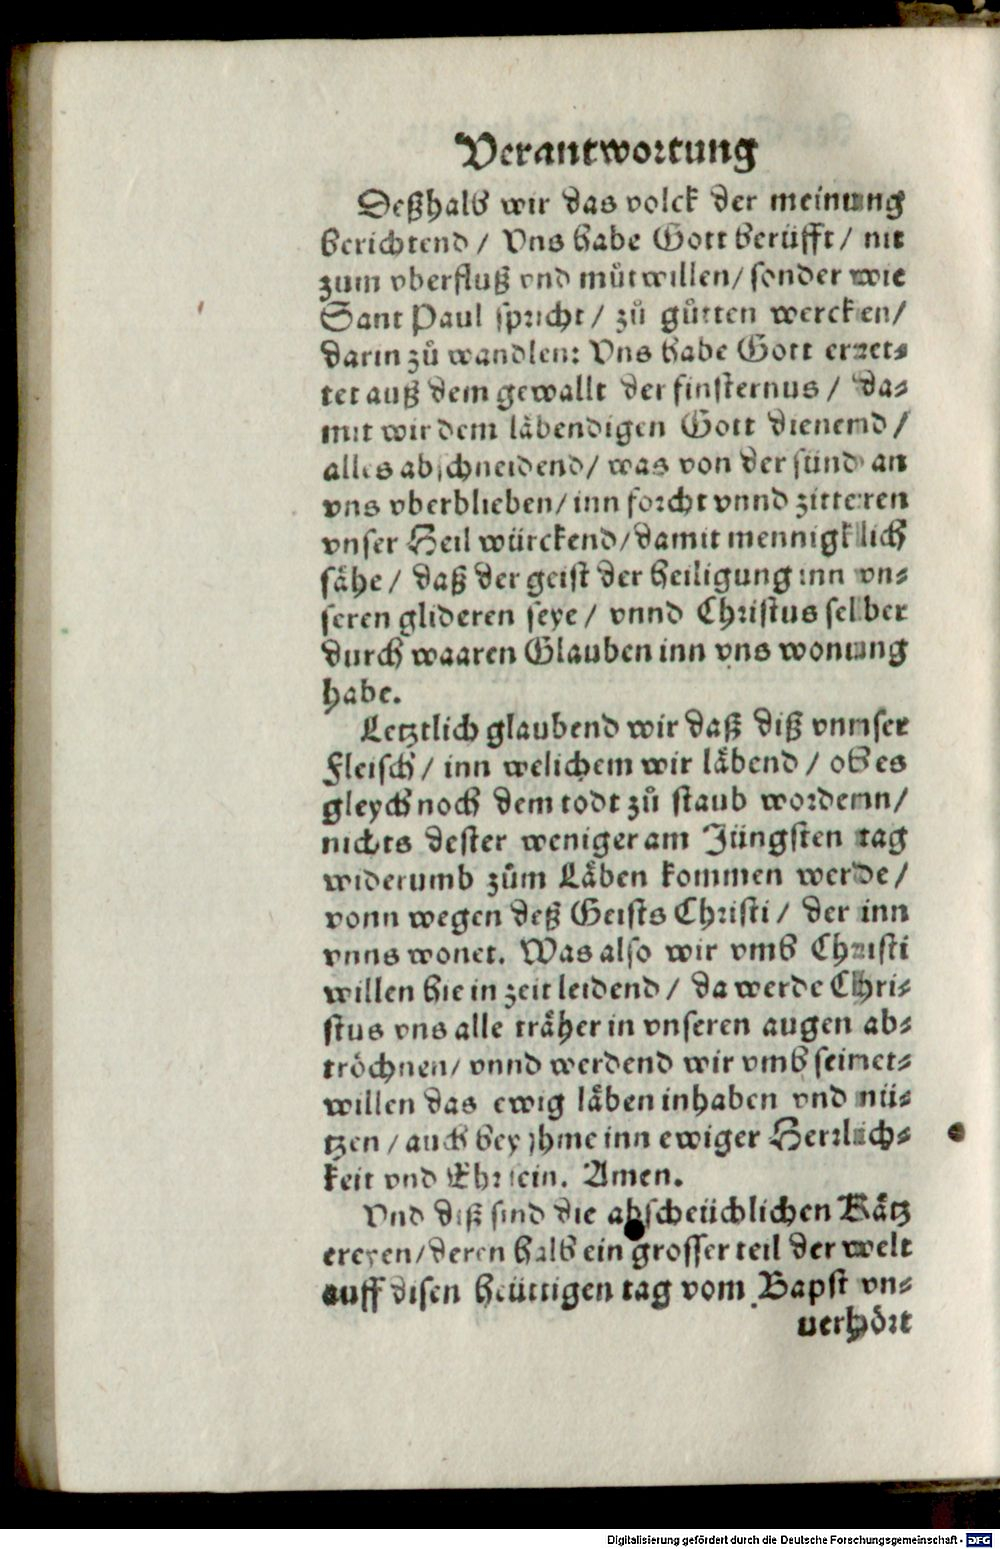 Verantwortung
Deßhalb wir das volck der meinung
berichtend / Vns habe Gott berüfft / nit
zum vberfluß vnd můtwillen / sonder wie
Sant Paul spricht / zů gůtten wercken /
darin zů wandlen: Vns habe Gott erret⸗
tet auß dem gewallt der finsternus / da⸗
mit wir dem läbendigen Gott dienend /
alles abschneidend / was von der sünd an
vns vberblieben / inn forcht vnnd zitteren
vnser Heil würckend / damit mennigklich
sähe / daß der geist der heiligung inn vn⸗
seren glideren seye / vnnd Christus selber
durch waaren Glauben inn vns wonung
habe.
Letztlich glaubend wir daß diß vnnser
Fleisch / inn welichem wir läbend / ob es
gleych noch dem todt zů staub worden /
nichts dester weniger am Jüngsten tag
widerumb zům Läben kommen werde /
vonn wegen deß Geists Christi / der inn
vnns wonet. Was also wir vmb Christi
willen hie in zeit leidend / da werde Chri⸗
stus vns alle träher in vnseren augen ab⸗
tröchnen / vnnd werdend wir vmb seinet⸗
willen das ewig läben inhaben vnd nü⸗
tzen / auch bey jhme inn ewiger Herrlich⸗
keit vnd Ehr sein. Amen.
Vnd diß sind die abscheüchlichen Kätz
ereyen / deren halb ein grosser teil der welt
auff disen heüttigen tag vom Bapst vn⸗
uerhört
Digitalisierung gefördert durch die Deutsche Forschungsgemeinschaft - DFG